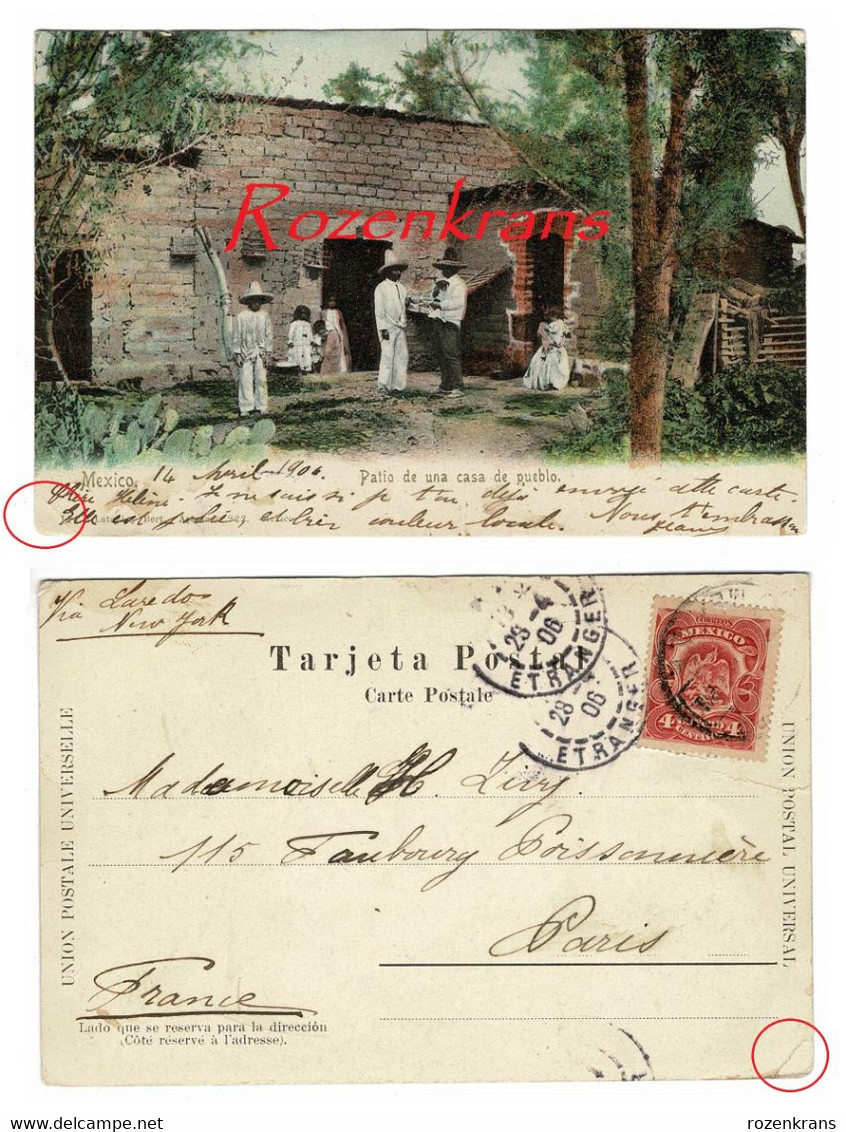 Rozenkrans
Mexico. 14 Avril 1906. Patio de una casa de pueblo.
Chère Hélène. Je ne sais si je t'en déjà envoyé cette carte.
Elle en jolie et très couleur locale. Nous t'embrassons
Via Laredo
New York
Tarjeta Postal
Carte Postale
28 -4
06
ETRANGER
28 -4
06
ETRANGER
CORREOS
MEXICO
4 4
CENTAVOS
UNION POSTALE UNIVERSELLE
UNION POSTAL UNIVERSAL
Mademoiselle H.
115 Faubourg Poissonnière
Paris
France
Lado que se reserva para la dirección
(Côté réservé à l'adresse).
delcampe.net
rozenkrans